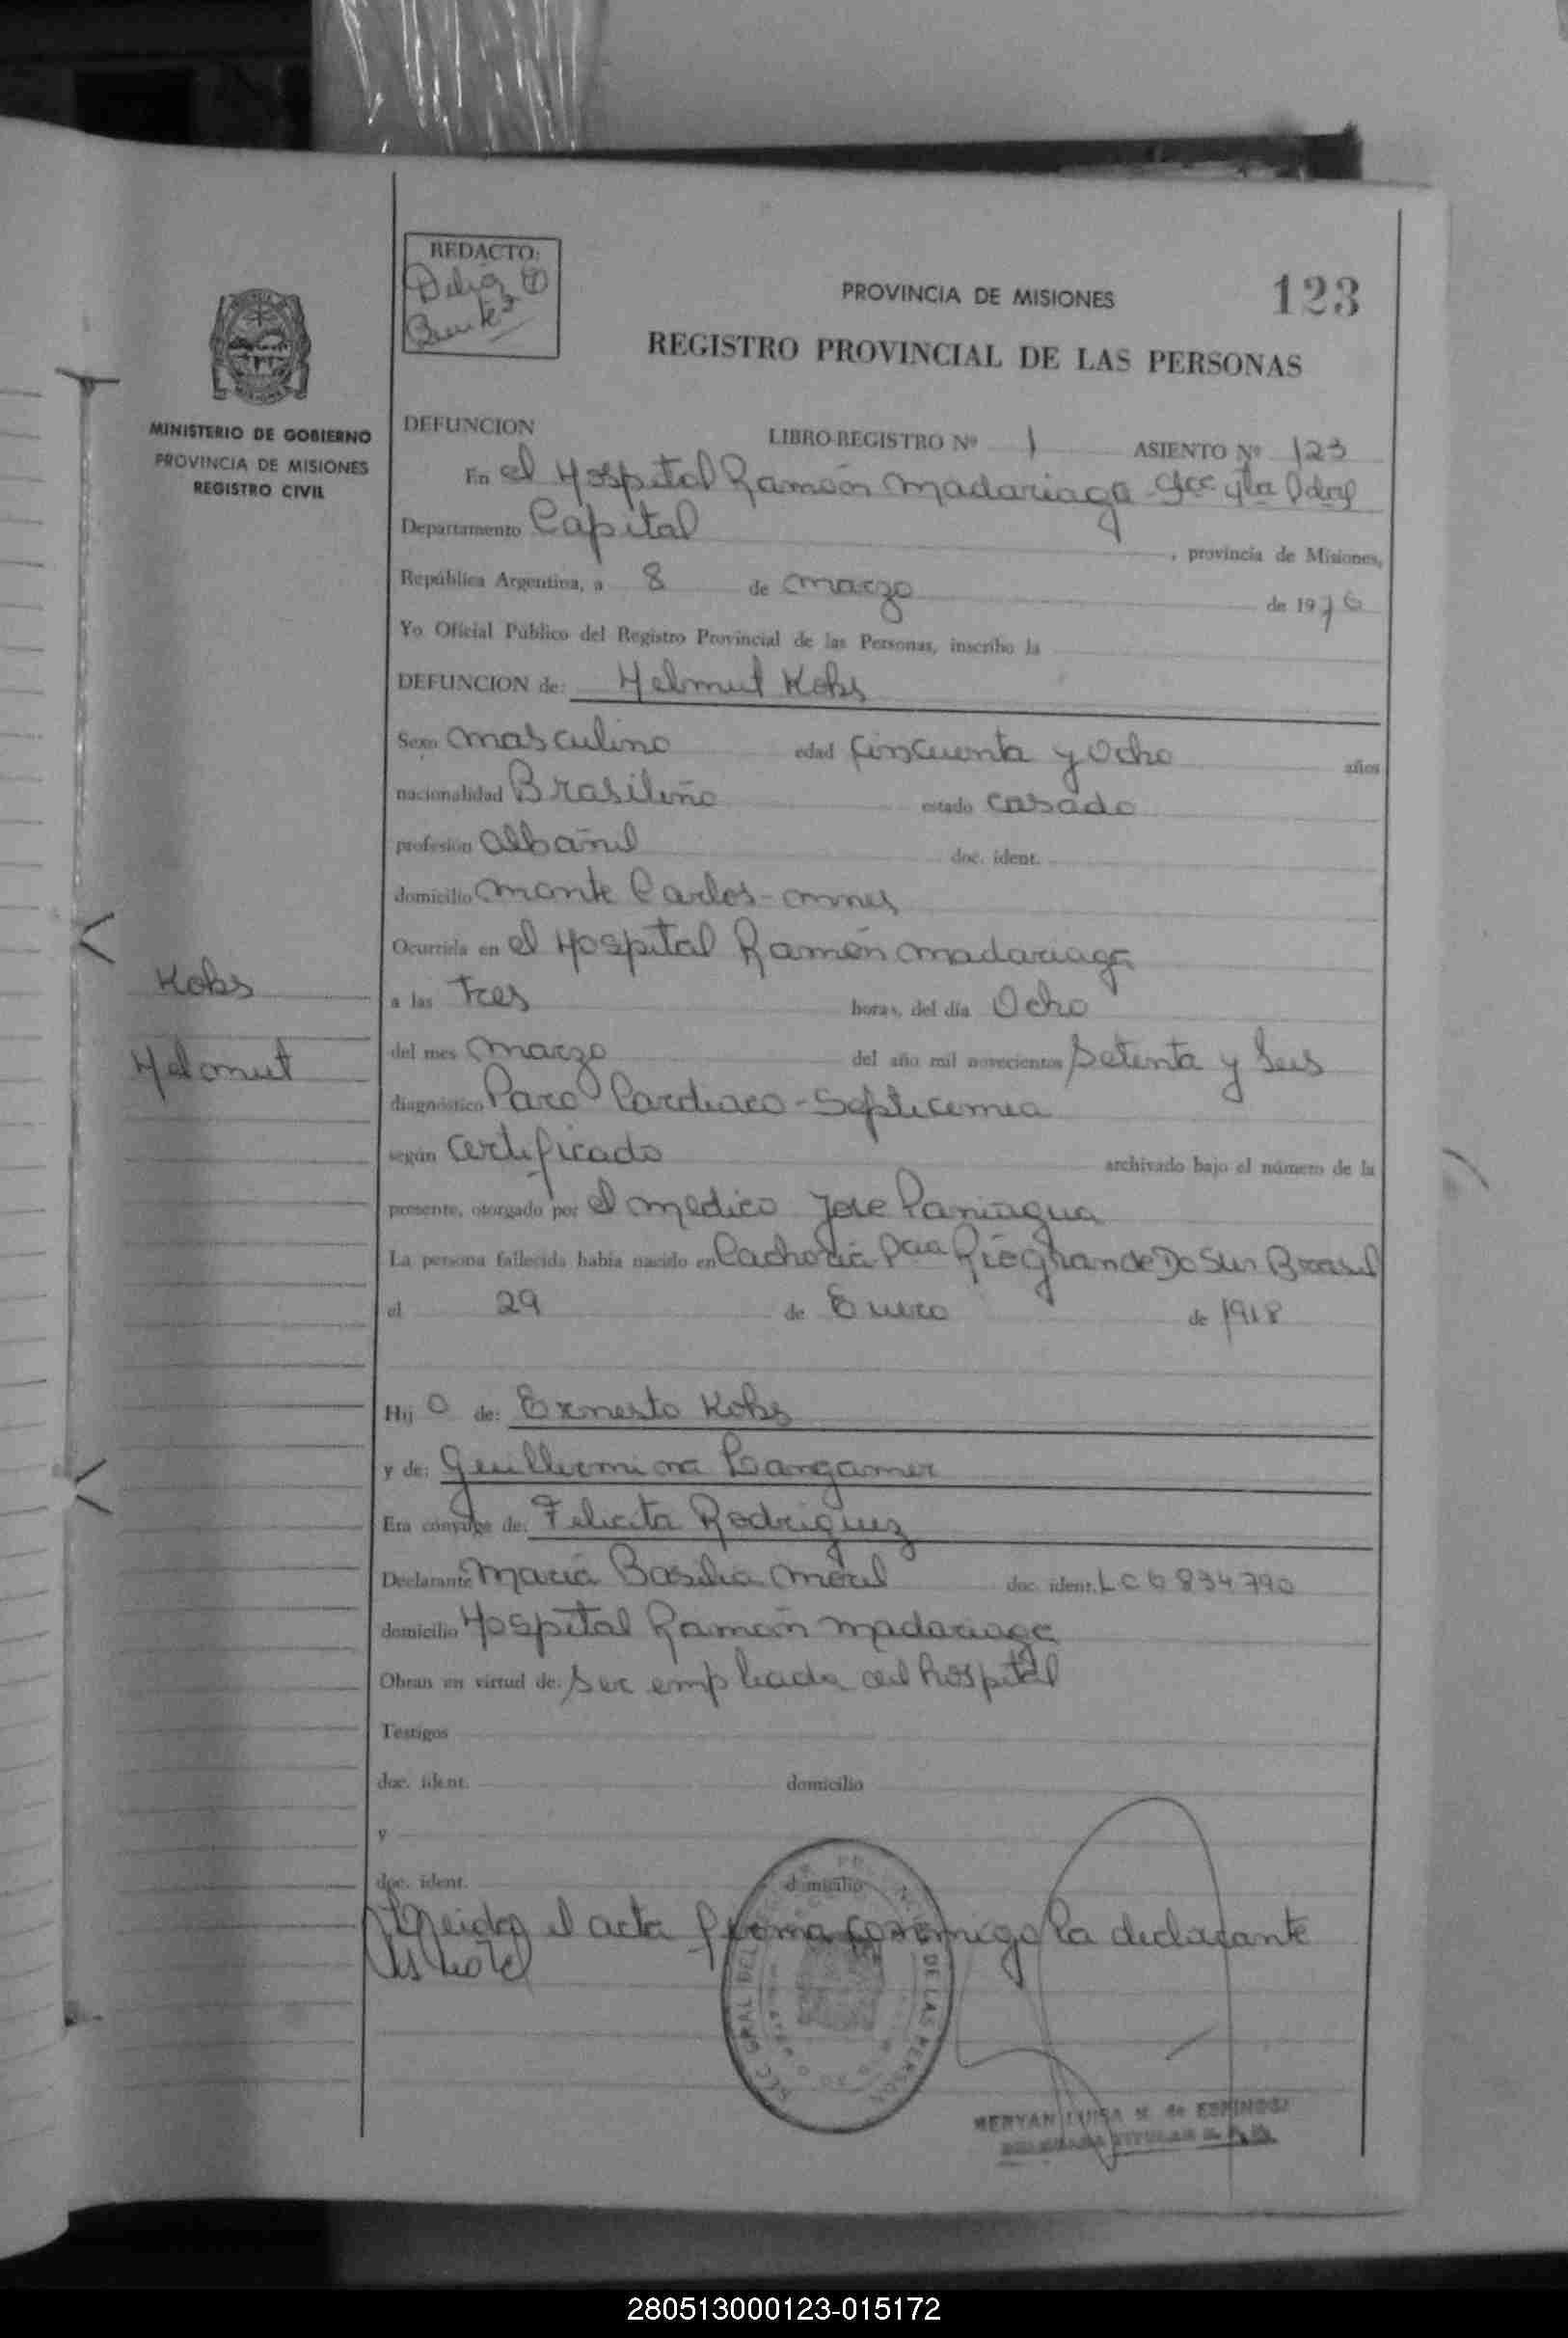 REDACTO:
Delia
PROVINCIA DE MISIONES
123
REGISTRO PROVINCIAL DE LAS PERSONAS
MINISTERIO DE GOBIERNO
PROVINCIA DE MISIONES
REGISTRO CIVIL
DEFUNCION LIBRO-REGISTRO Nº 1 ASIENTO Nº 123
En el Hospital Ramón Madariaga
Departamento Capital, provincia de Misiones,
República Argentina, a 8 de marzo de 1976
Yo Oficial Público del Registro Provincial de las Personas, inscribo la
DEFUNCION de: Helmut Kobs
Sexo masculino edad cincuenta y Ocho años
nacionalidad Brasileño estado casado
profesión albañil doc. ident.
domicilio Monte Carlos - Mnes
Ocurrida en el Hospital Ramón Madariaga
Kobs
a las tres horas, del día Ocho
Helmut
del mes marzo del año mil novecientos Setenta y Seis
diagnóstico Paro Cardiaco - Septicemia
según Certificado archivado bajo el número de la
presente, otorgado por el medico Jose Paniagua
La persona fallecida había nacido en Rio Grande Do Sur Brasil
el 29 de Enero de 1918
Hijo de: Ernesto Kobs
y de: Guillermina Langamer
Era cónyuge de: Felicita Rodriguez
Declarante Maria Basilia doc. ident. LC 6834790
domicilio Hospital Ramón Madariaga
Obran en virtud de: Ser empleada del hospital
Testigos
doc. ident. domicilio
y
doc. ident. domicilio
Leida el acta firma conmigo la declarante
DE LAS PERSON
LUISA M. de ESPINOSA
TITULAR
280513000123-015172